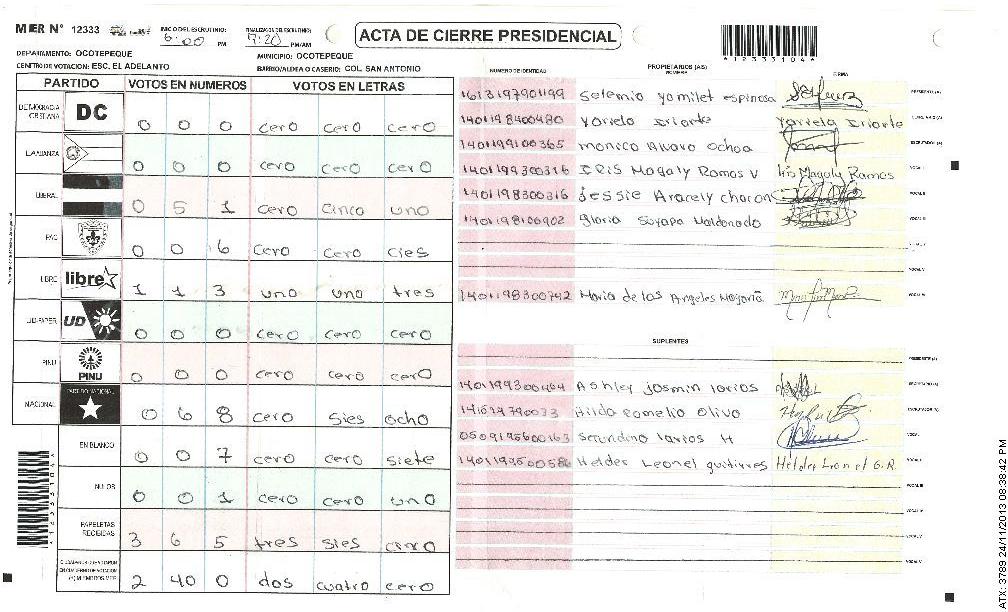 MER N° 12333
INICIO DEL ESCRUTINIO: 6:00 PM
FINALIZACION DEL ESCRUTINIO: 7:20 PM/AM
ACTA DE CIERRE PRESIDENCIAL
*1233310 4*
DEPARTAMENTO: OCOTEPEQUE
MUNICIPIO: OCOTEPEQUE
CENTRO DE VOTACION: ESC. EL ADELANTO
BARRIO/ALDEA O CASERIO: COL. SAN ANTONIO
PARTIDO VOTOS EN NUMEROS VOTOS EN LETRAS
DEMOCRACIA CRISTIANA DC 0 0 0 cero cero cero
ALIANZA 0 0 0 cero cero cero
LIBERAL 0 5 1 cero cinco uno
PAC 0 0 6 cero cero cies
LIBRE libre 1 1 3 uno uno tres
UD-FAPER UD 0 0 0 cero cero cero
PINU PINU 0 0 0 cero cero cero
NACIONAL PARTIDO NACIONAL 0 6 8 cero sies ocho
EN BLANCO 0 0 7 cero cero siete
NULOS 0 0 1 cero cero uno
PAPELETAS RECIBIDAS 3 6 5 tres sies cinco
2 40 0 dos cuatro cero
NUMERO DE IDENTIDAD PROPIETARIOS (AS) NOMBRE FIRMA
1613197901199 Selemio yamilet espinosa PRESIDENTE (A)
1401198400480 Yoriela Iriarte Yoriela Iriarte SECRETARIO (A)
1401199100365 monico Alvaro Ochoa ESCRUTADOR (A)
1401199300316 IRIS Magaly Ramos V Iris Magaly Ramos VOCAL I
1401198300316 Jessie Aracely chacon VOCAL II
1401198100902 gloria Sayapa Maldonado VOCAL III
VOCAL V
1401198300742 Maria de los Angeles Magaña
SUPLENTES
PRESIDENTE (A)
1401199300464 Ashley Josmin larios SECRETARIO (A)
Hilda Romelio Olivo ESCRUTADOR (A)
0509195600163 Secundino larios H VOCAL I
1401199500586 Helder Leonel gutierres Helder Leonel G.R. VOCAL II
VOCAL III
VOCAL IV
VOCAL V
ATX: 3789 24/11/2013 08:38:42 PM